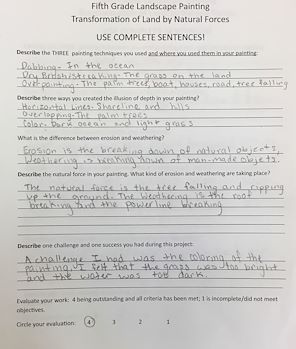 Fifth Grade Landscape Painting
Transformation of Land by Natural Forces
USE COMPLETE SENTENCES!
Describe the THREE painting techniques you used and where you used them in your painting:
Dabbing- In the ocean
Dry Brush/streaking- The grass on the land
Overpainting- The palm trees, boat, houses, road, tree falling
Describe three ways you created the illusion of depth in your painting?
Horizontal Lines- Shoreline and hills
Overlapping- The palm trees
Color- Dark ocean and light grass
What is the difference between erosion and weathering?
Erosion is the breaking down of natural objects,
Weathering is breaking down of man-made objets.
Describe the natural force in your painting. What kind of erosion and weathering are taking place?
The natural force is the tree falling and ripping
up the ground. The weathering is the roof
breaking and the powerline breaking
Describe one challenge and one success you had during this project:
A challenge I had was the coloring of the
painting. I felt that the grass was too bright
and the water was too dark.
Evaluate your work: 4 being outstanding and all criteria has been met; 1 is incomplete/did not meet
objectives.
Circle your evaluation: 4 3 2 1